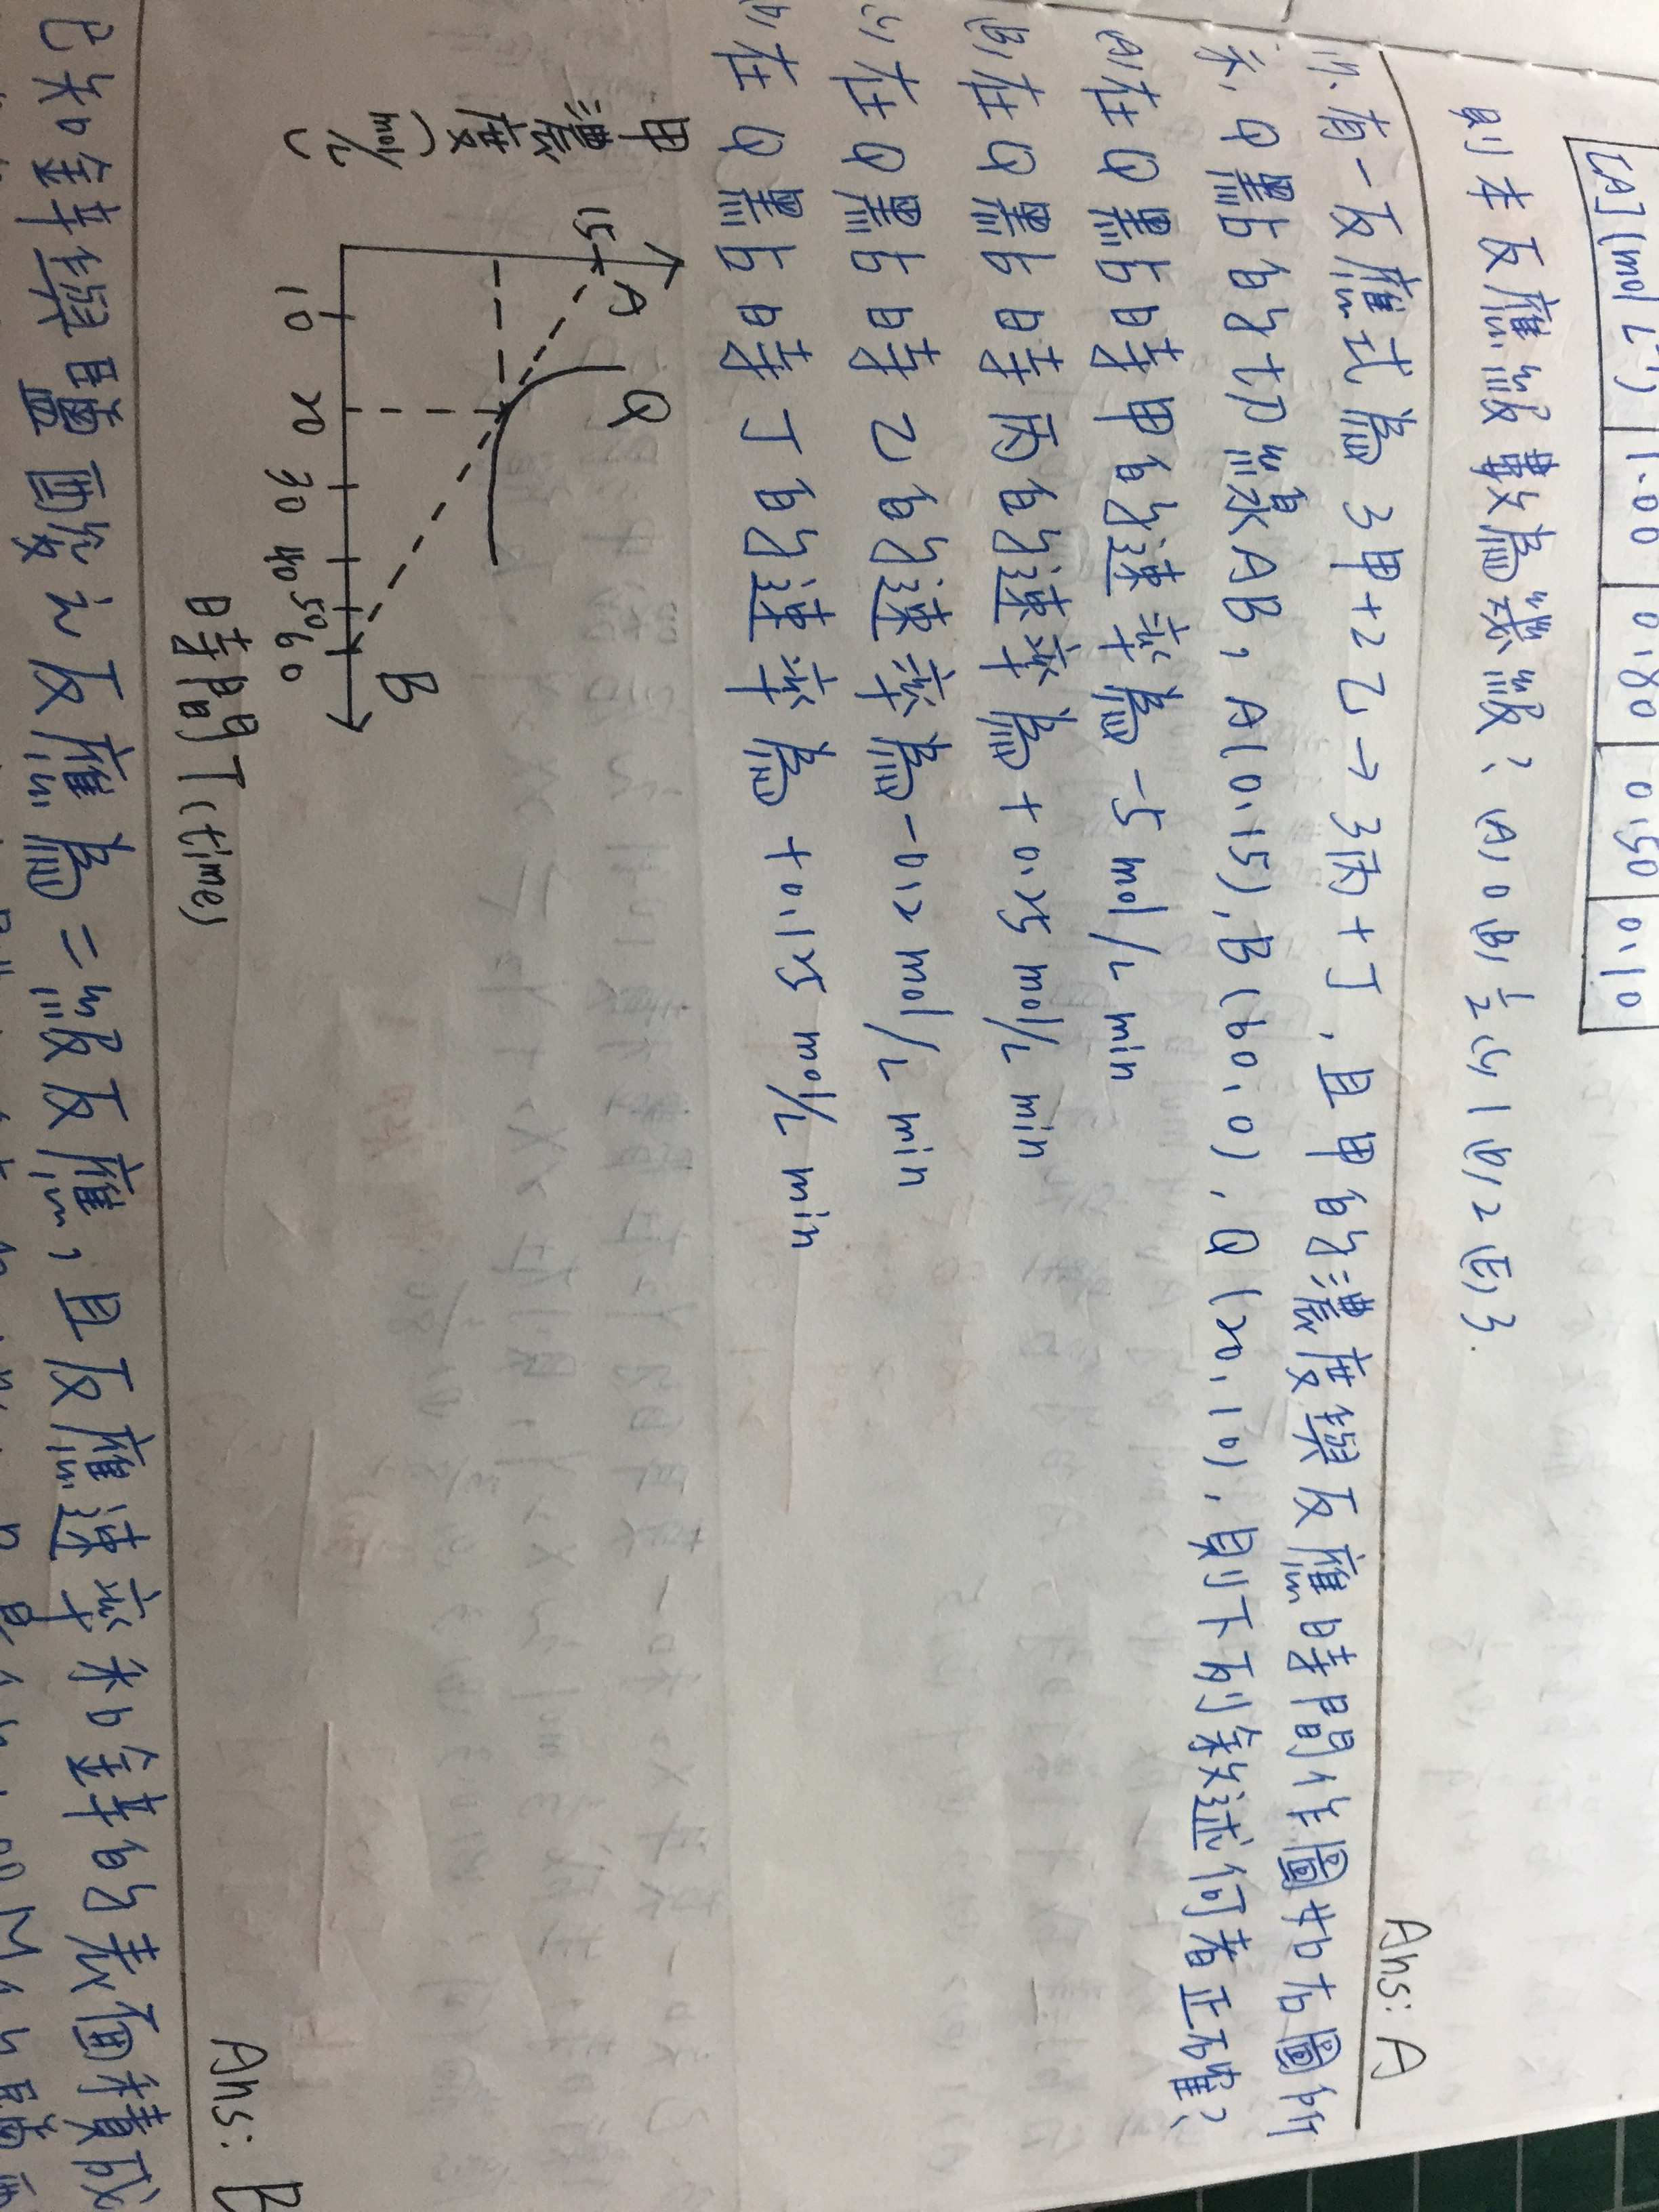 [A](mol L⁻¹) 1.00 0.80 0.50 0.10
則本反應級數為幾級? (A) 0 (B) ½ (C) 1 (D) 2 (E) 3.
Ans: A
有一反應式為 3甲+2乙→3丙+丁,且甲的濃度對反應時間作圖如右圖所
示,Q點的切線AB,A(0,15)、B(60,0)、Q(20,10),則下列敘述何者正確?
(A)在Q點時甲的速率為-5 mol/L min
(B)在Q點時丙的速率為+0.25 mol/L min
(C)在Q點時乙的速率為-0.2 mol/L min
在Q點時丁的速率為+0.125 mol/L min
甲濃度(mol/L)
15
A
Q
B
10 20 30 40 50 60
時間T(time)
Ans: B
已知a案對
反應為二級反應,且反應速率